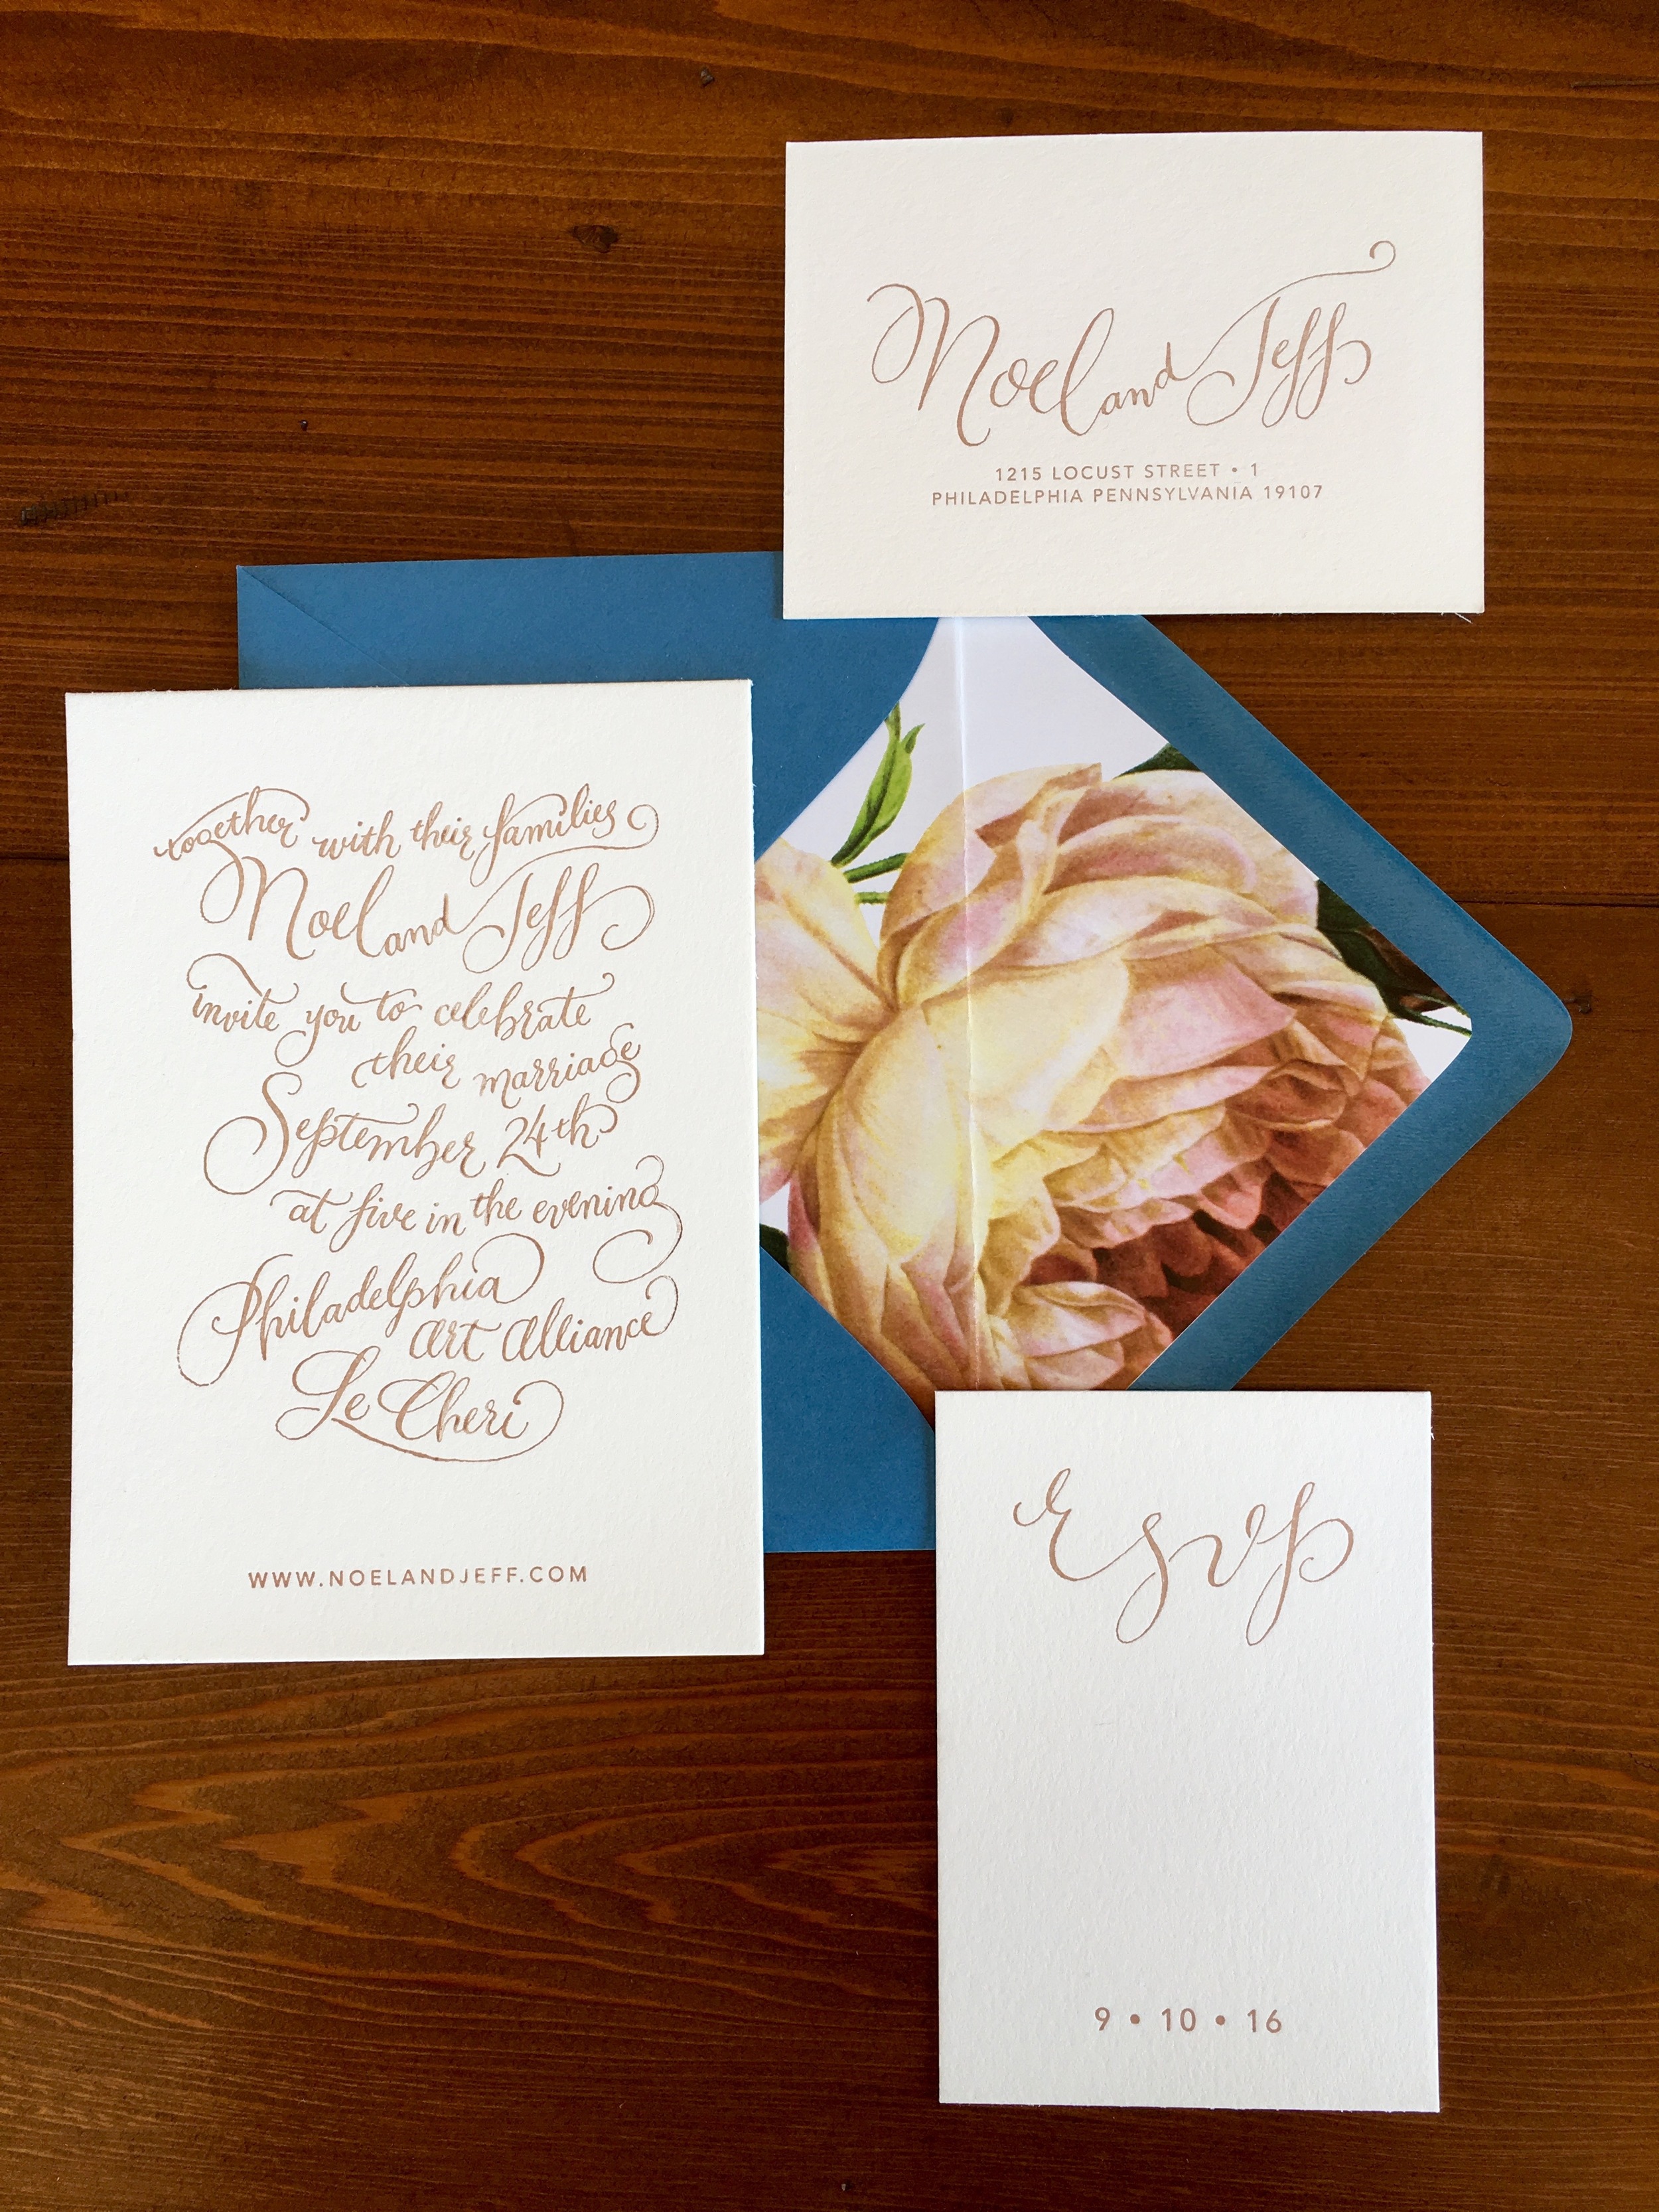 Noel and Jeff
1215 LOCUST STREET • 1
PHILADELPHIA PENNSYLVANIA 19107
together with their families
Noel and Jeff
invite you to celebrate
their marriage
September 24th
at five in the evening
Philadelphia
Art Alliance
Le Cheri
WWW.NOELANDJEFF.COM
rsvp
9 • 10 • 16